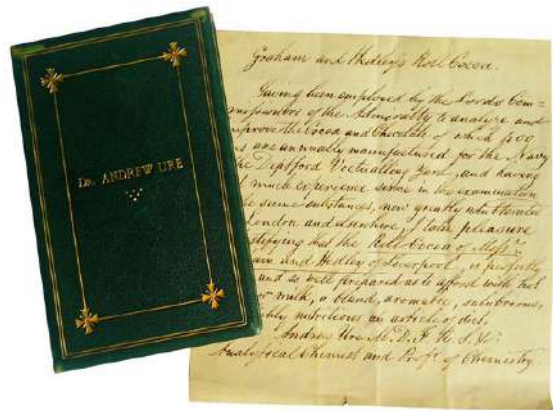 Dr. ANDREW URE
Graham and Hedley's Roll Cocoa.
Having been employed by the Lords Com=
missioners of the Admiralty to analyze and
improve the Cocoa and Chocolate of which
are annually manufactured for the Navy
Deptford Victualling Yard, and having
much experience since in the examination
same substances, now greatly
London and elsewhere, I take pleasure
testifying that the Roll Cocoa of Messrs
and Hedley of Liverpool, is perfectly
and so well prepared as to afford with hot
or milk, a bland, aromatic, salubrious,
nutritious an article of diet.
Andrew Ure M.D. F.R.S. &c.
Analytical Chemist and Profr. of Chemistry